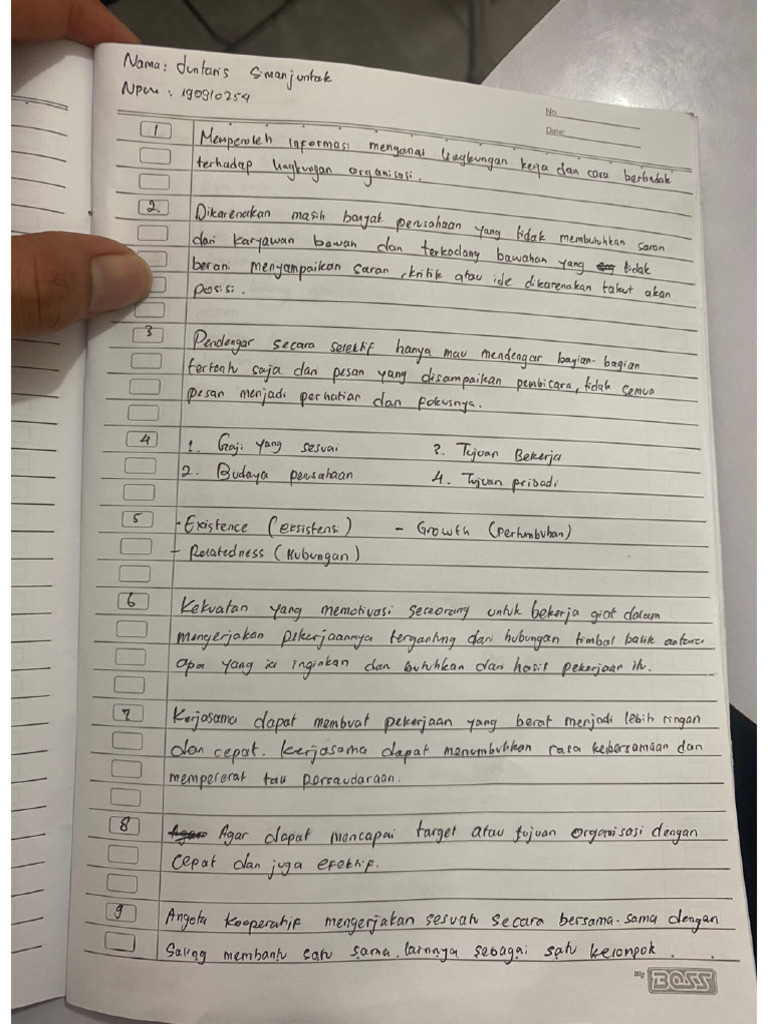 Nama: Juntaris Simanjuntak
Npm : 190910254
No.
Date:
1 Memperoleh informasi mengenai lingkungan kerja dan cara bertindak
terhadap lingkungan organisasi.
2. Dikarenakan masih banyak perusahaan yang tidak membutuhkan saran
dari karyawan bawah dan terkadang bawahan yang tidak
berani menyampaikan saran, kritik atau ide dikarenakan takut akan
posisi.
3 Pendengar secara selektif hanya mau mendengar bagian-bagian
tertentu saja dari pesan yang disampaikan pembicara, tidak semua
pesan menjadi perhatian dan fokusnya.
4 1. Gaji yang sesuai 3. Tujuan Bekerja
2. Budaya perusahaan 4. Tujuan pribadi
5 - Existence (eksistens) - Growth (Pertumbuhan)
- Relatedness (Hubungan)
6 Kekuatan yang memotivasi seseorang untuk bekerja giat dalam
mengerjakan pekerjaannya tergantung dari hubungan timbal balik antara
apa yang ia inginkan dan butuhkan dari hasil pekerjaan itu.
7 Kerjasama dapat membuat pekerjaan yang berat menjadi lebih ringan
dan cepat. Kerjasama dapat menumbuhkan rasa kebersamaan dan
mempererat tau persaudaraan.
8 Agar dapat mencapai target atau tujuan organisasi dengan
cepat dan juga efektif.
9 Angota kooperatif mengerjakan sesuatu secara bersama-sama dengan
saling membantu satu sama lainnya sebagai satu kelompok.
My BOSS